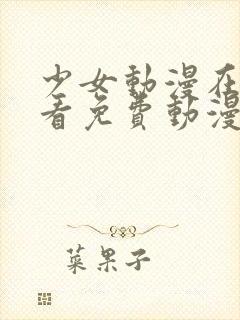 少女動漫在
看免費動漫
菜果子